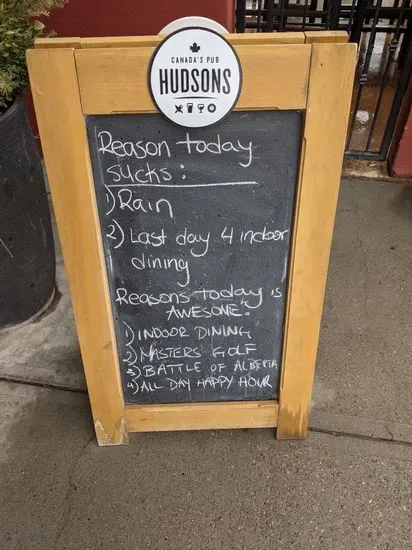 CANADA'S PUB
HUDSONS
Reason today
sucks:
1) Rain
2) Last day 4 indoor
dining
Reasons today is
AWESOME:
1) INDOOR DINING
2) MASTERS GOLF
3) BATTLE OF ALBERTA
4) ALL DAY HAPPY HOUR